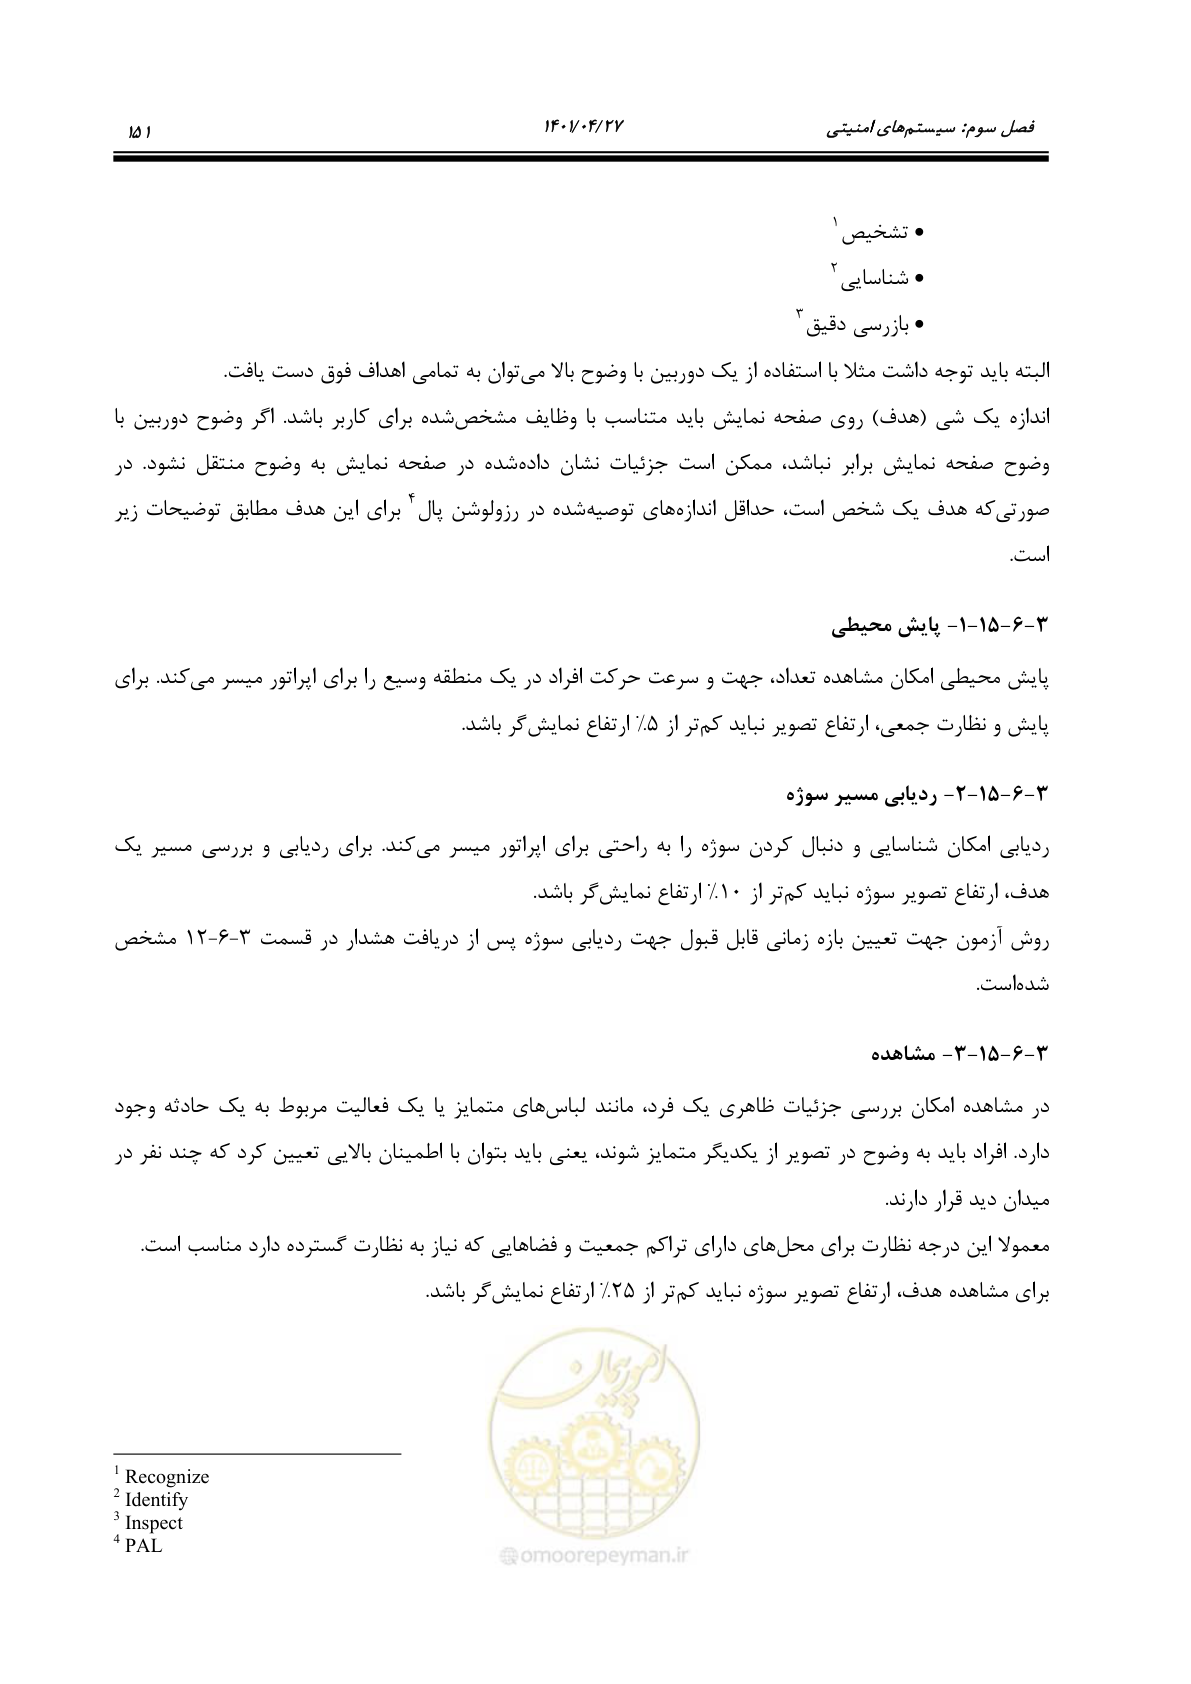 فصل سوم: سیستم‌های امنیتی ۱۴۰۱/۰۴/۲۷ ۱۵۱
• تشخیص۱
• شناسایی۲
• بازرسی دقیق۳
البته باید توجه داشت مثلا با استفاده از یک دوربین با وضوح بالا می‌توان به تمامی اهداف فوق دست یافت.
اندازه یک شی (هدف) روی صفحه نمایش باید متناسب با وظایف مشخص‌شده برای کاربر باشد. اگر وضوح دوربین با
وضوح صفحه نمایش برابر نباشد، ممکن است جزئیات نشان داده‌شده در صفحه نمایش به وضوح منتقل نشود. در
صورتی‌که هدف یک شخص است، حداقل اندازه‌های توصیه‌شده در رزولوشن پال۴ برای این هدف مطابق توضیحات زیر
است.
۳-۶-۱۵-۱- پایش محیطی
پایش محیطی امکان مشاهده تعداد، جهت و سرعت حرکت افراد در یک منطقه وسیع را برای اپراتور میسر می‌کند. برای
پایش و نظارت جمعی، ارتفاع تصویر نباید کم‌تر از ۵٪ ارتفاع نمایش‌گر باشد.
۳-۶-۱۵-۲- ردیابی مسیر سوژه
ردیابی امکان شناسایی و دنبال کردن سوژه را به راحتی برای اپراتور میسر می‌کند. برای ردیابی و بررسی مسیر یک
هدف، ارتفاع تصویر سوژه نباید کم‌تر از ۱۰٪ ارتفاع نمایش‌گر باشد.
روش آزمون جهت تعیین بازه زمانی قابل قبول جهت ردیابی سوژه پس از دریافت هشدار در قسمت ۳-۶-۱۲ مشخص
شده‌است.
۳-۶-۱۵-۳- مشاهده
در مشاهده امکان بررسی جزئیات ظاهری یک فرد، مانند لباس‌های متمایز یا یک فعالیت مربوط به یک حادثه وجود
دارد. افراد باید به وضوح در تصویر از یکدیگر متمایز شوند، یعنی باید بتوان با اطمینان بالایی تعیین کرد که چند نفر در
میدان دید قرار دارند.
معمولا این درجه نظارت برای محل‌های دارای تراکم جمعیت و فضاهایی که نیاز به نظارت گسترده دارد مناسب است.
برای مشاهده هدف، ارتفاع تصویر سوژه نباید کم‌تر از ۲۵٪ ارتفاع نمایش‌گر باشد.
امور پیمان
1 Recognize
2 Identify
3 Inspect
4 PAL
@omoorepeyman.ir